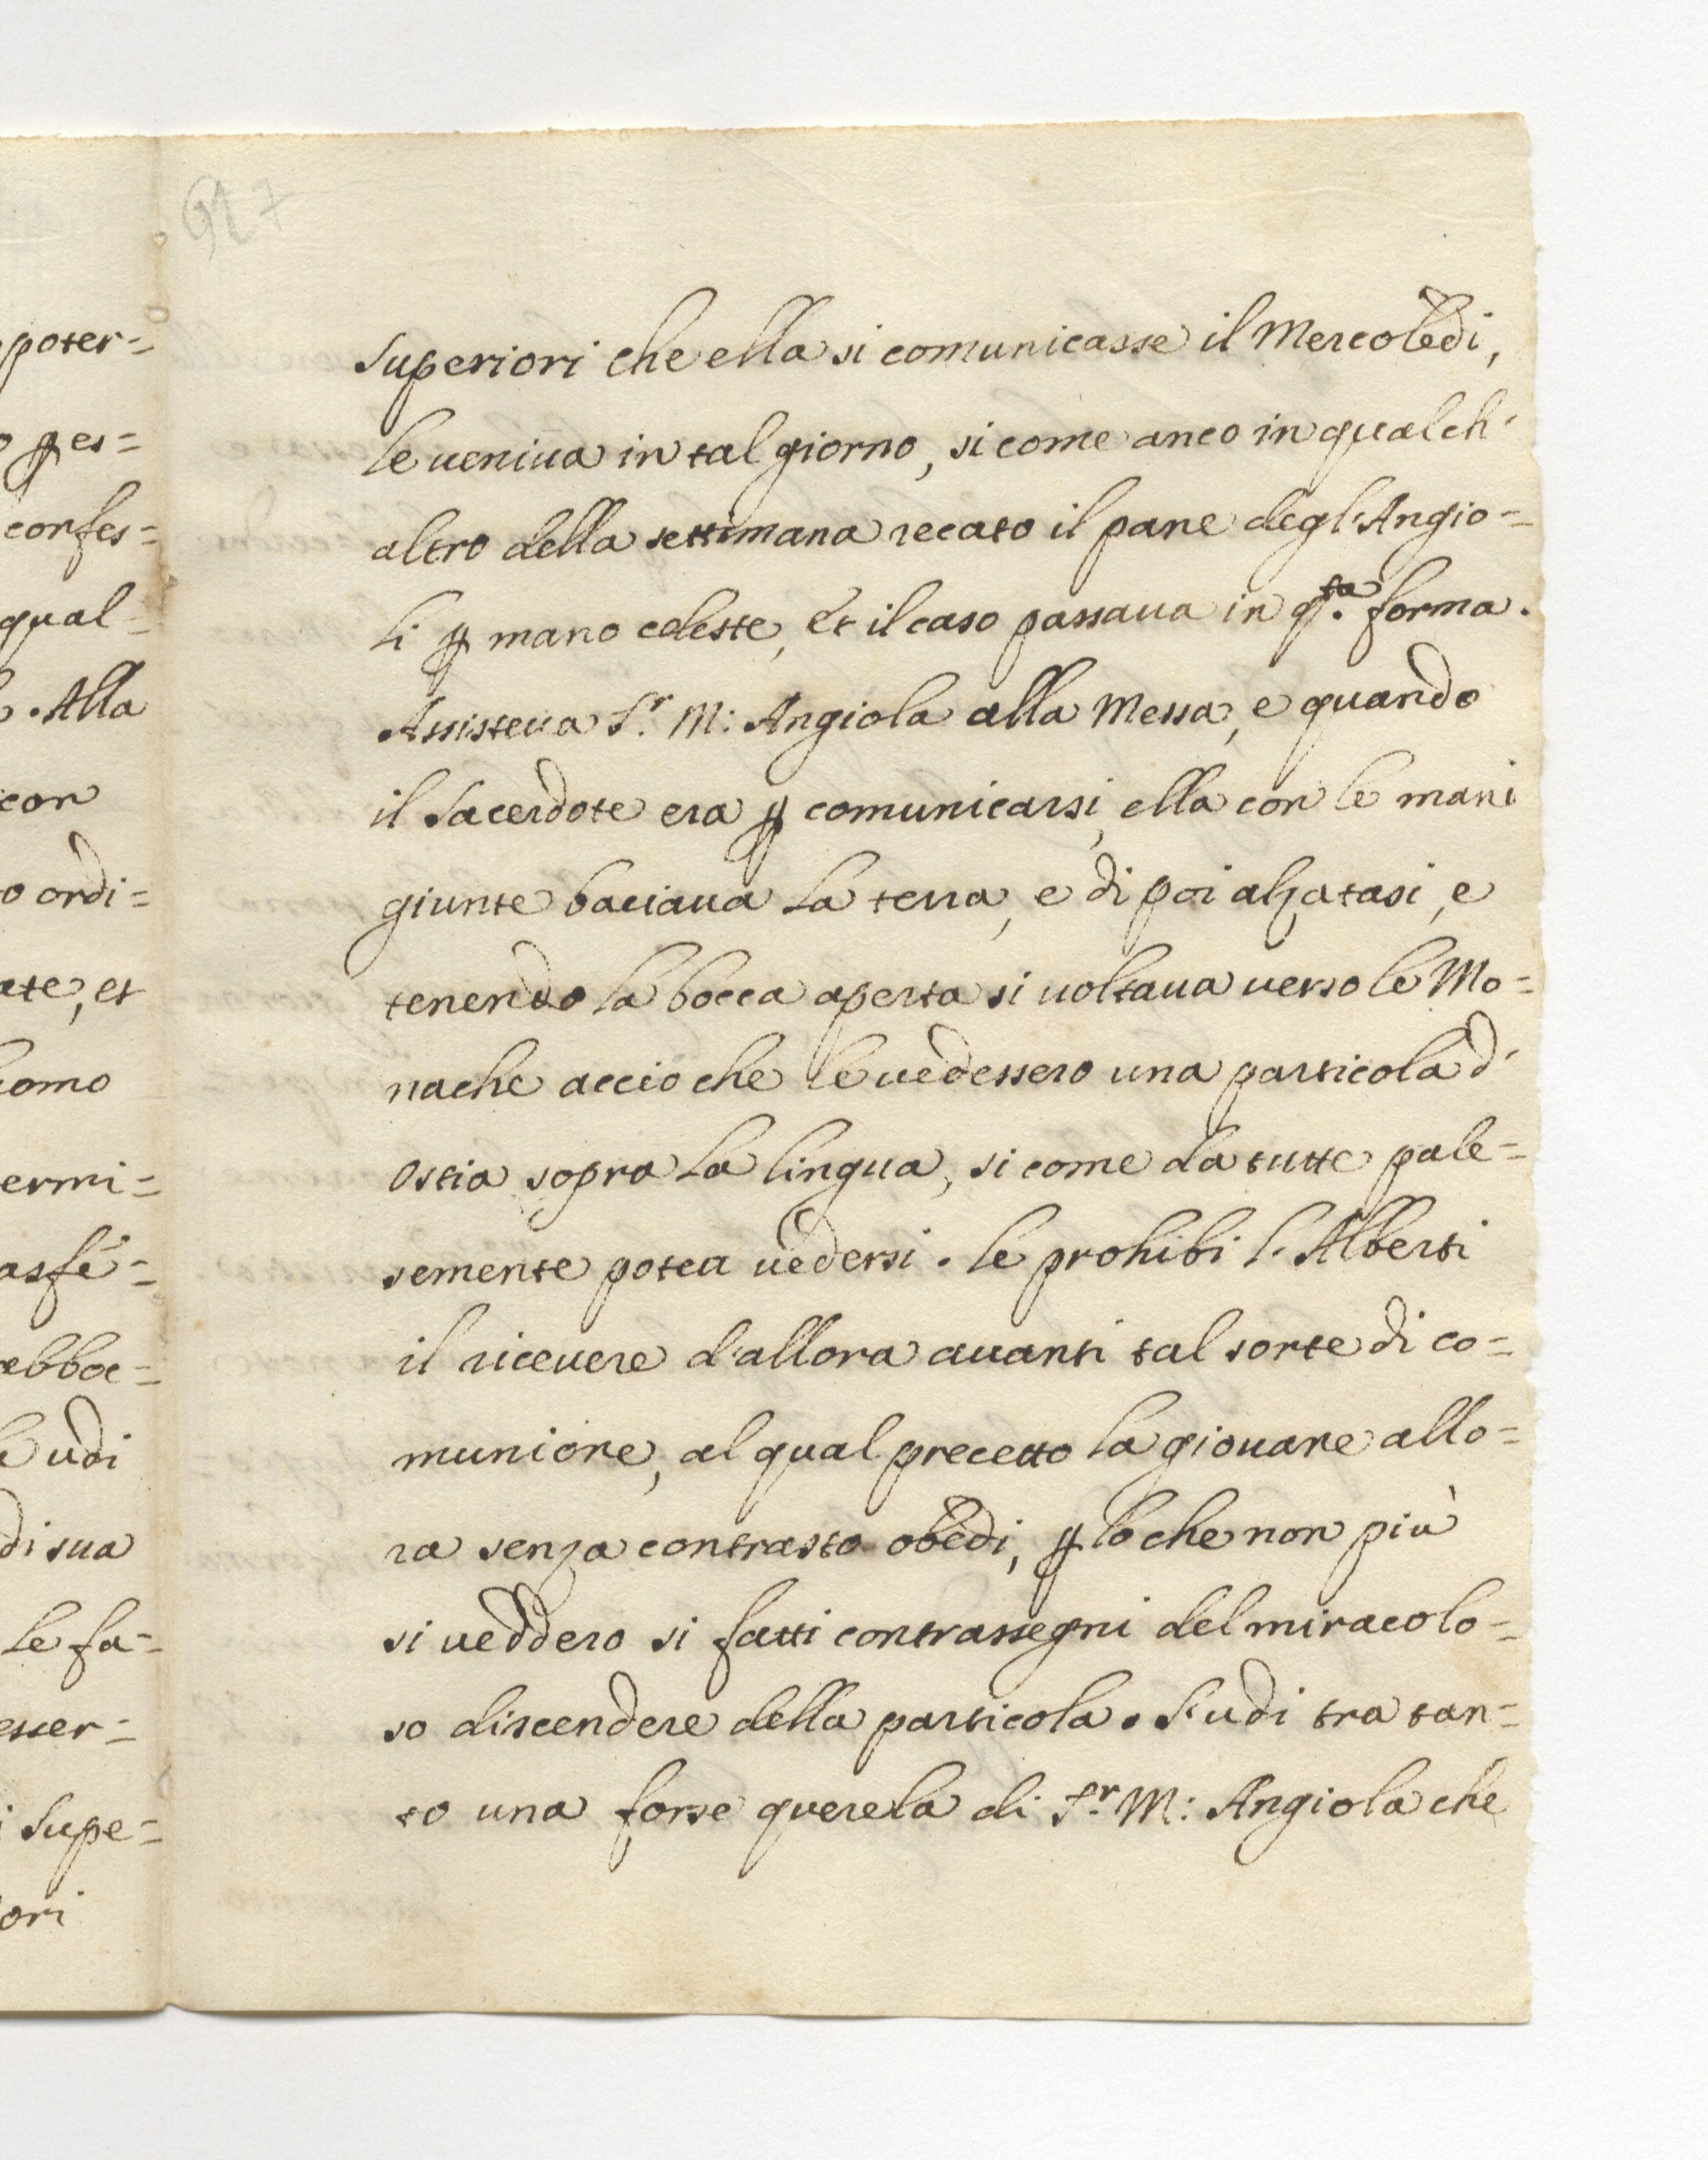 poter=
o ꝑes=
confes=
qual=
. Alla
con
o ordi=
ate, et
homo
ermi=
asfe=
ebboc=
le udi
di sua
le fa=
esser=
i Supe=
ori
Superiori che ella si comunicasse il Mercoledi,
le ueniua in tal giorno, si come anco in qualch'
altro della settimana recato il pane degl'Angio=
li ꝑ mano celeste, et il caso passaua in q.ta forma.
Assisteua S.r M: Angiola alla Messa, e quando
il Sacerdote era ꝑ comunicarsi, ella con le mani
giunte baciaua la terra, e di poi alzatasi, e
tenendo la bocca aperta si uoltaua uerso le Mo=
nache accio che le uedessero una particola d'
Ostia sopra la lingua, si come da tutte pale=
semente potea uedersi. le prohibi l'Alberti
il riceuere d'allora auanti tal sorte di co=
munione, al qual precetto la giouane allo=
ra senza contrasto obedi, ꝑ lo che non più
si ueddero si fatti contrassegni del miracolo=
so discendere della particola. S'udi tra tan=
to una forse querela di S.r M: Angiola che